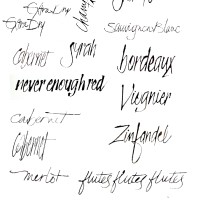 Extra Dry
Extra Dry
Sauvignon Blanc
Cabernet
Syrah
bordeaux
never enough red
Viognier
Cabernet
Cabernet
Zinfandel
merlot
flutes flutes flutes